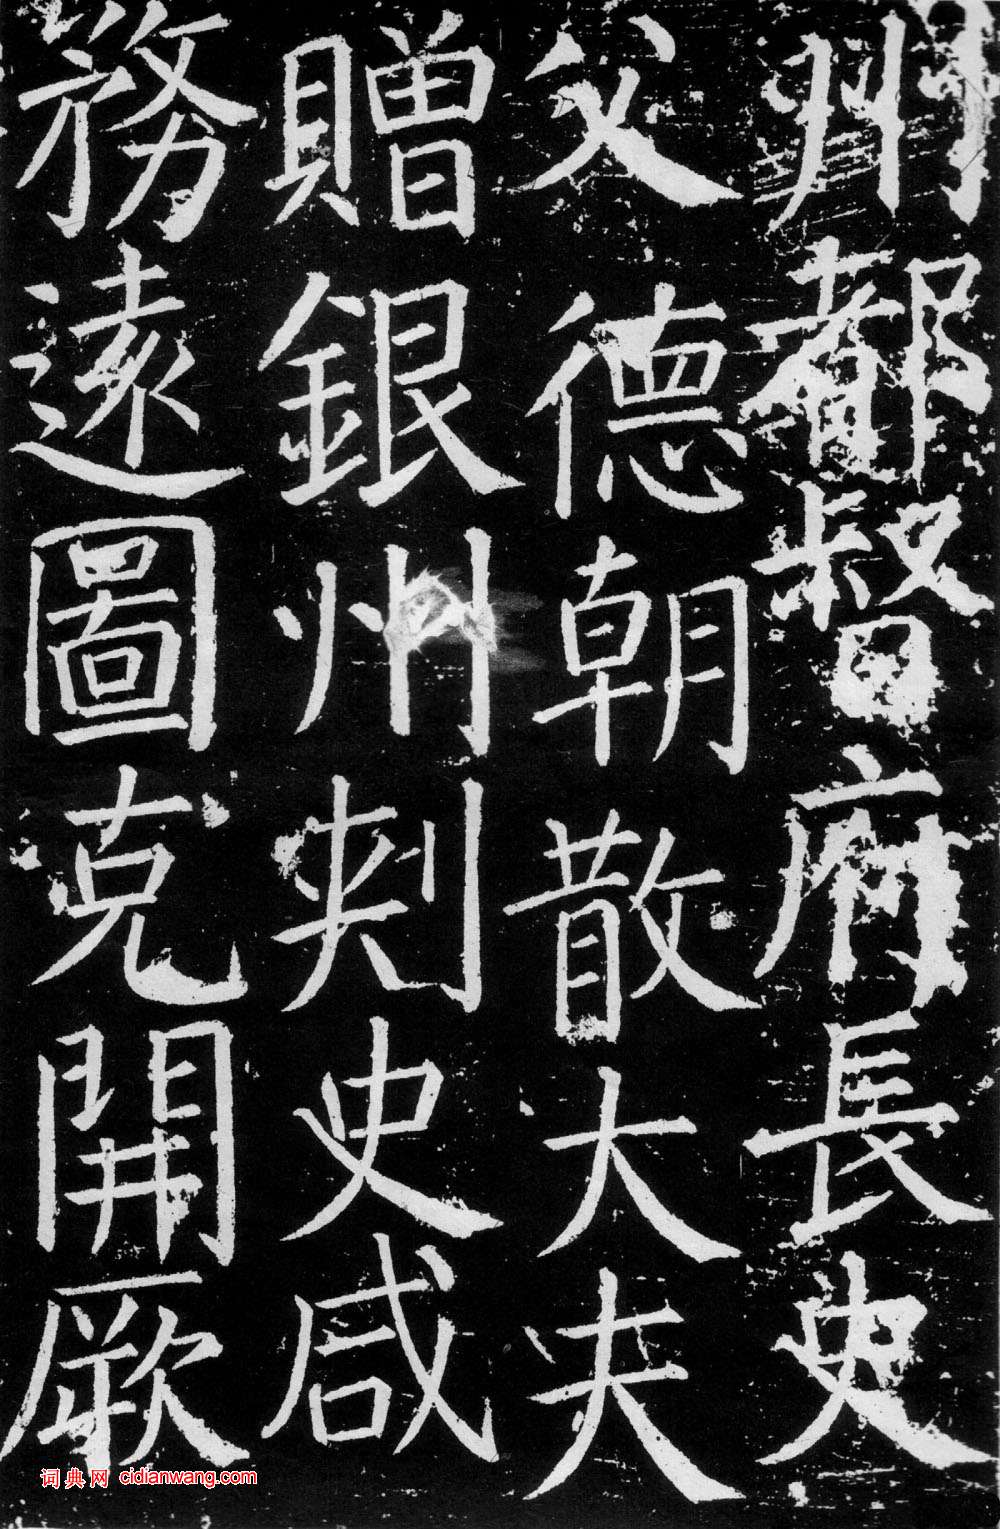 州都督府長史
父德朝散大夫
贈銀州刺史咸
務遠圖克開厥
词典网 cidianwang.com